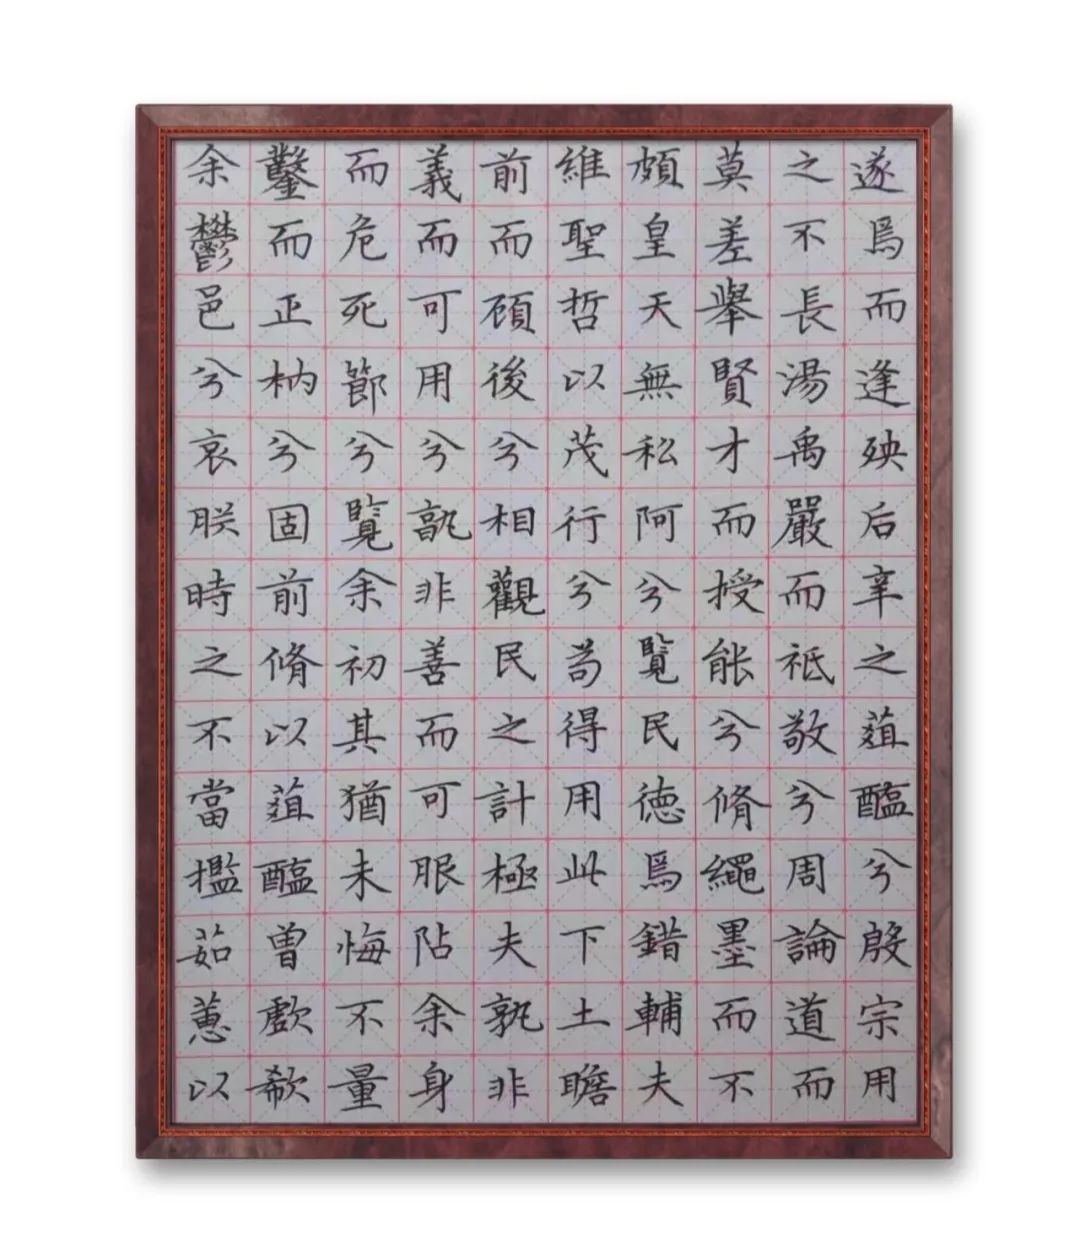 遂焉而逢殃后辛之菹醢兮殷宗用
之不長湯禹嚴而祗敬兮周論道而
莫差舉賢才而授能兮脩繩墨而不
頗皇天無私阿兮覽民徳焉錯輔夫
維聖哲以茂行兮苟得用此下土瞻
前而顧後兮相觀民之計極夫孰非
義而可用兮孰非善而可服阽余身
而危死節兮覽余初其猶未悔不量
鑿而正枘兮固前脩以菹醢曾歔欷
余鬱邑兮哀朕時之不當㩜茹蕙以